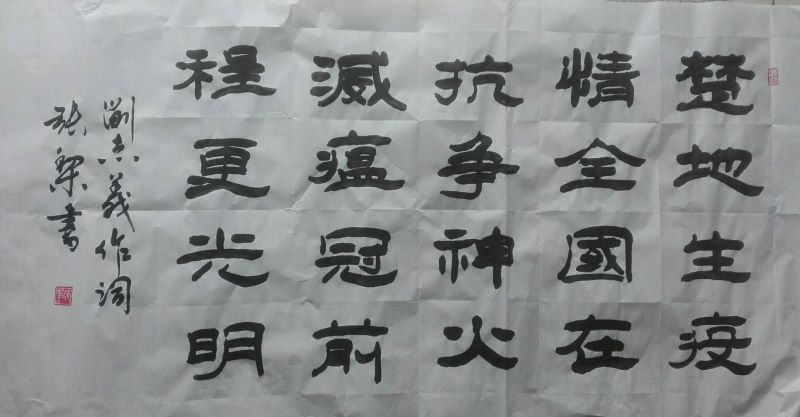 楚地生疫
情全國在
抗争神火
滅瘟冠前
程更光明
劉 義作词
张 書